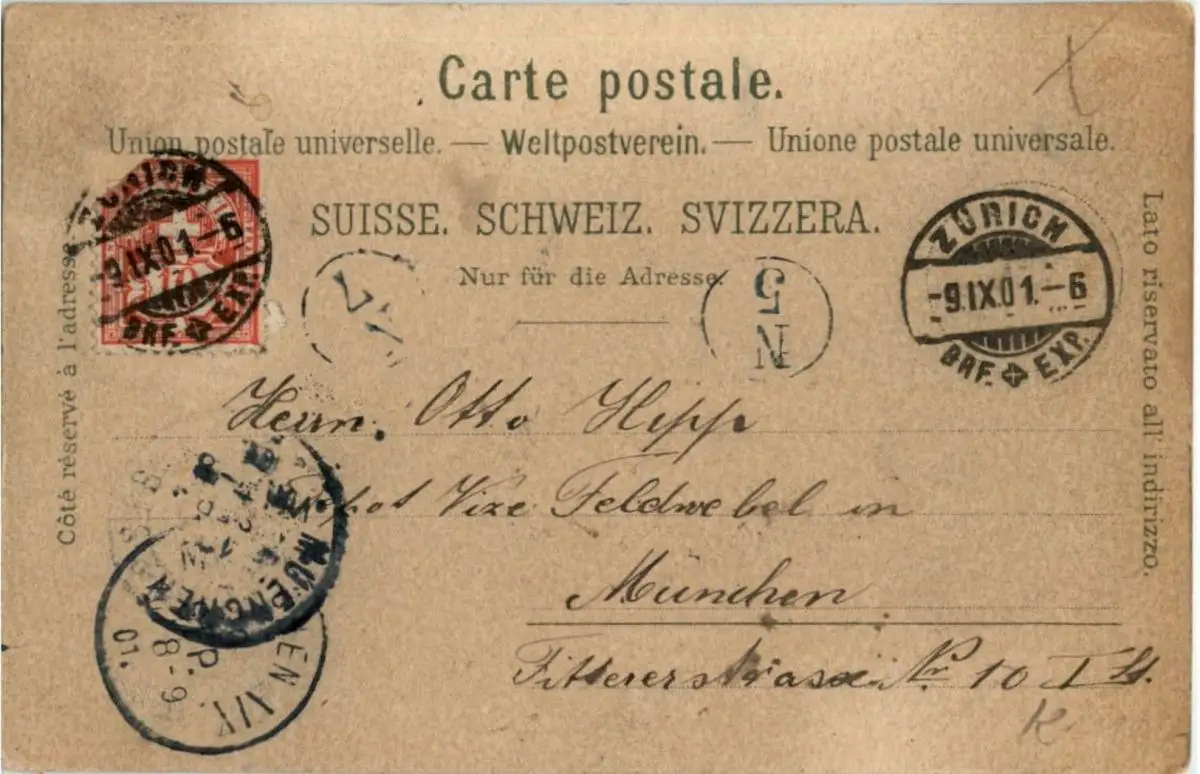 Carte postale.
Union postale universelle. — Weltpostverein. — Unione postale universale.
SUISSE. SCHWEIZ. SVIZZERA.
Nur für die Adresse.
Côté réservé à l'adresse
Lato riservato all' indirizzo.
ZÜRICH
-9.IX.01.-6
BRF. EXP.
10
ZÜRICH
-9.IX.01.-6
BRF. EXP.
5
N
Herrn. Otto Hipp
Vize Feldwebel in
München
Nr. 10 I St.
K
MUENCHEN
01.
8-9